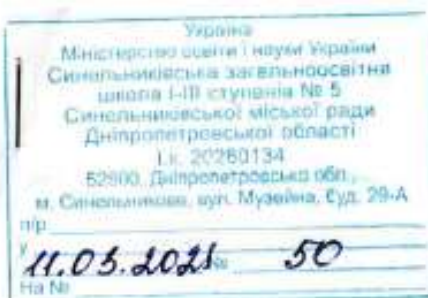 Україна
Міністерство освіти і науки України
Синельниківська загальноосвітня
школа І-ІІІ ступенів № 5
Синельниківської міської ради
Дніпропетровської області
І.к. 20260134
52500, Дніпропетровська обл.,
м. Синельникове, вул. Музейна, буд. 29-А
п/р
у
11.03.2021 № 50
На №